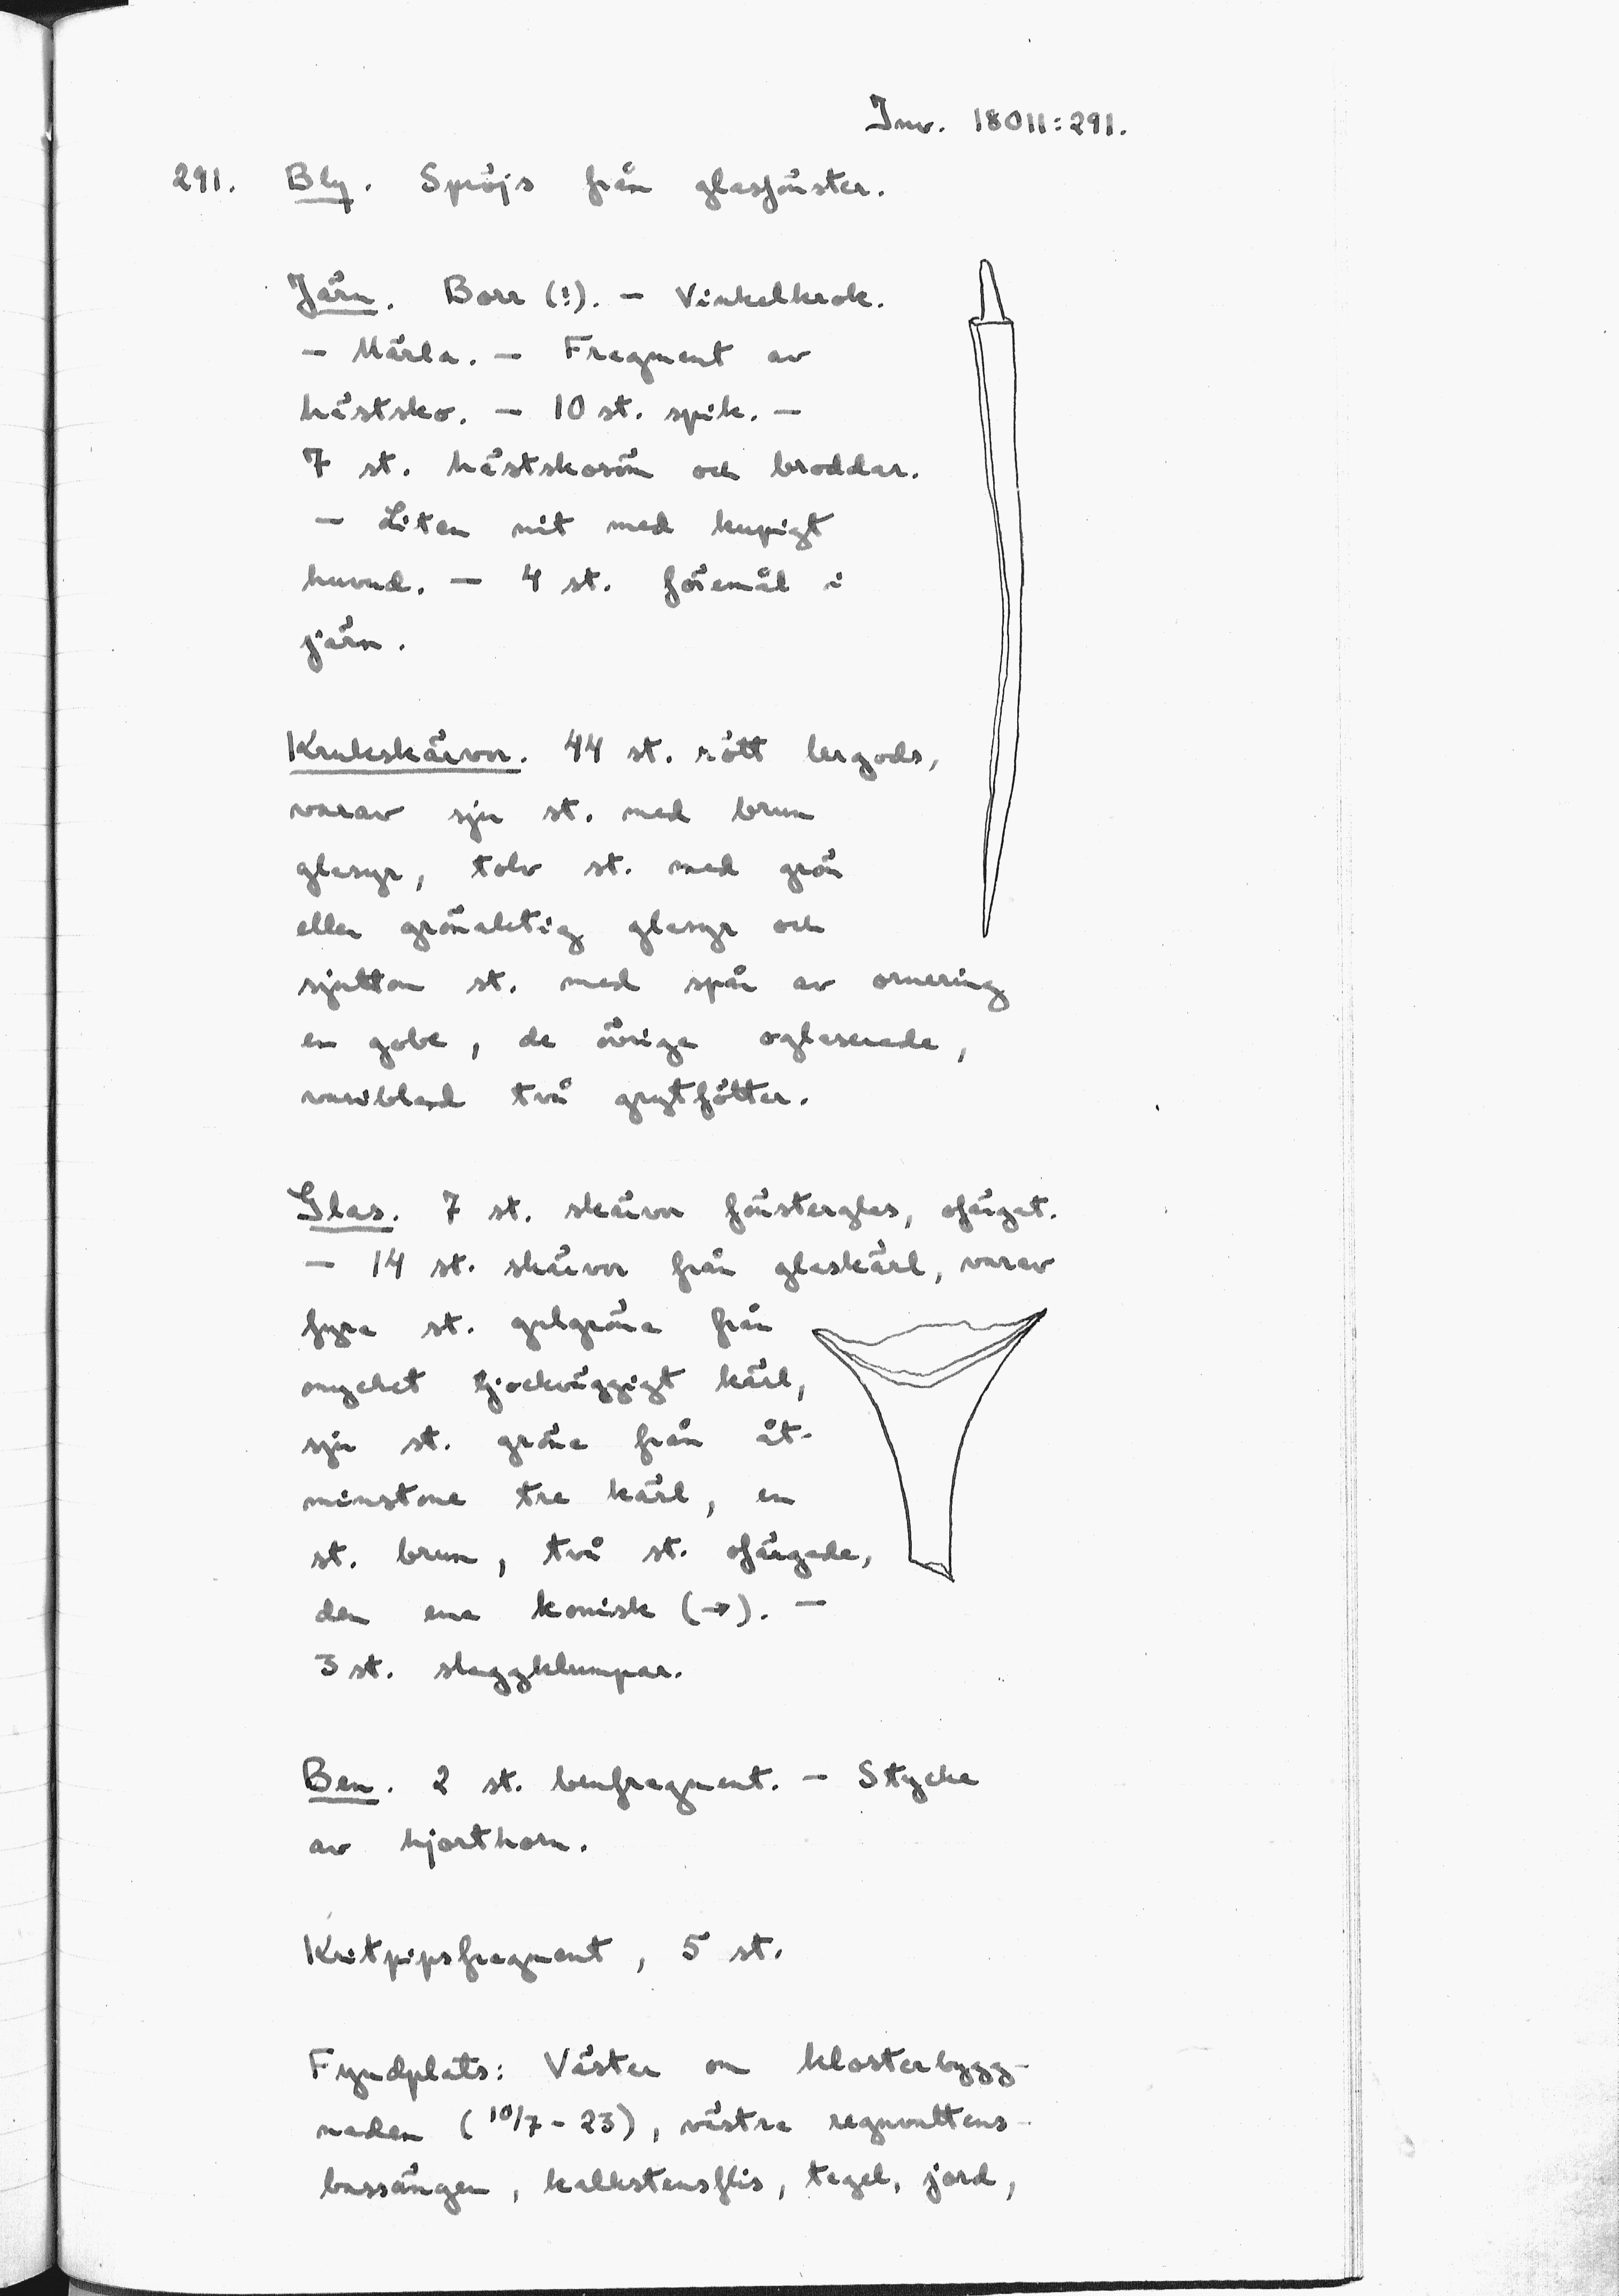 Inv. 18011:291.
291. Bly. Spröjs från glasfönster.
Järn. Borr (?). — Vinkelkrok.
— Märla. — Fragment av
hästsko. — 10 st. spik. —
7 st. hästskosöm och broddar.
— Liten nit med kupigt
huvud. — 4 st. föremål i
järn.
Krukskärvor. 44 st. rött lergods,
varav sju st. med brun
glasyr, tolv st. med grön
eller grönaktig glasyr och
sjutton st. med spår av ornering
en gobe, de övriga oglaserade,
varibland två grytfötter.
Glas. 7 st. skärvor fönsterglas, ofärgat.
— 14 st. skärvor från glaskärl, varav
fyra st. gulgröna från
mycket tjockväggigt kärl,
sju st. gröna från åt-
minstone tre kärl, en
st. brun, två st. ofärgade,
den ena konisk (→). —
3 st. slaggklumpar.
Ben. 2 st. benfragment. — Stycke
av hjorthorn.
Kritpipsfragment, 5 st.
Fyndplats: Väster om klosterbygg-
naden (10/7 - 23), västra regnvattens-
bassängen, kalkstensflis, tegel, jord,